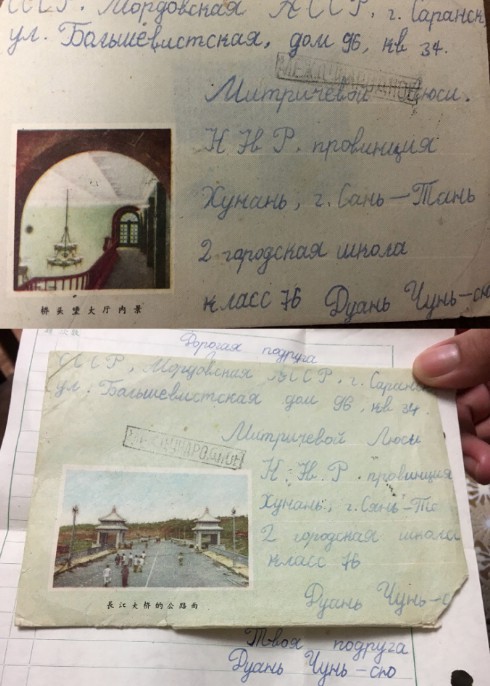 СССР. Мордовская АССР, г. Саранск
ул. Большевистская, дом 96, кв 34.
МЕЖДУНАРОДНОЕ
Митричевой Люси.
К Н Р. провинция
Хунань, г. Сянь-Тань
2 городская школа
класс 76 Дуань Чунь-сю
桥头堡大厅内景
Дорогая подруга
СССР, Мордовская АССР, г. Саранс
ул. Большевистская дом 96, кв 34.
МЕЖДУНАРОДНОЕ
Митричевой Люси
К. Н. Р. провинция
Хунань, г. Сянь-Та
2 городская школа
класс 76
Дуань Чунь-с
長江大桥的公路面
Твоя подруга
Дуань Чунь-сю